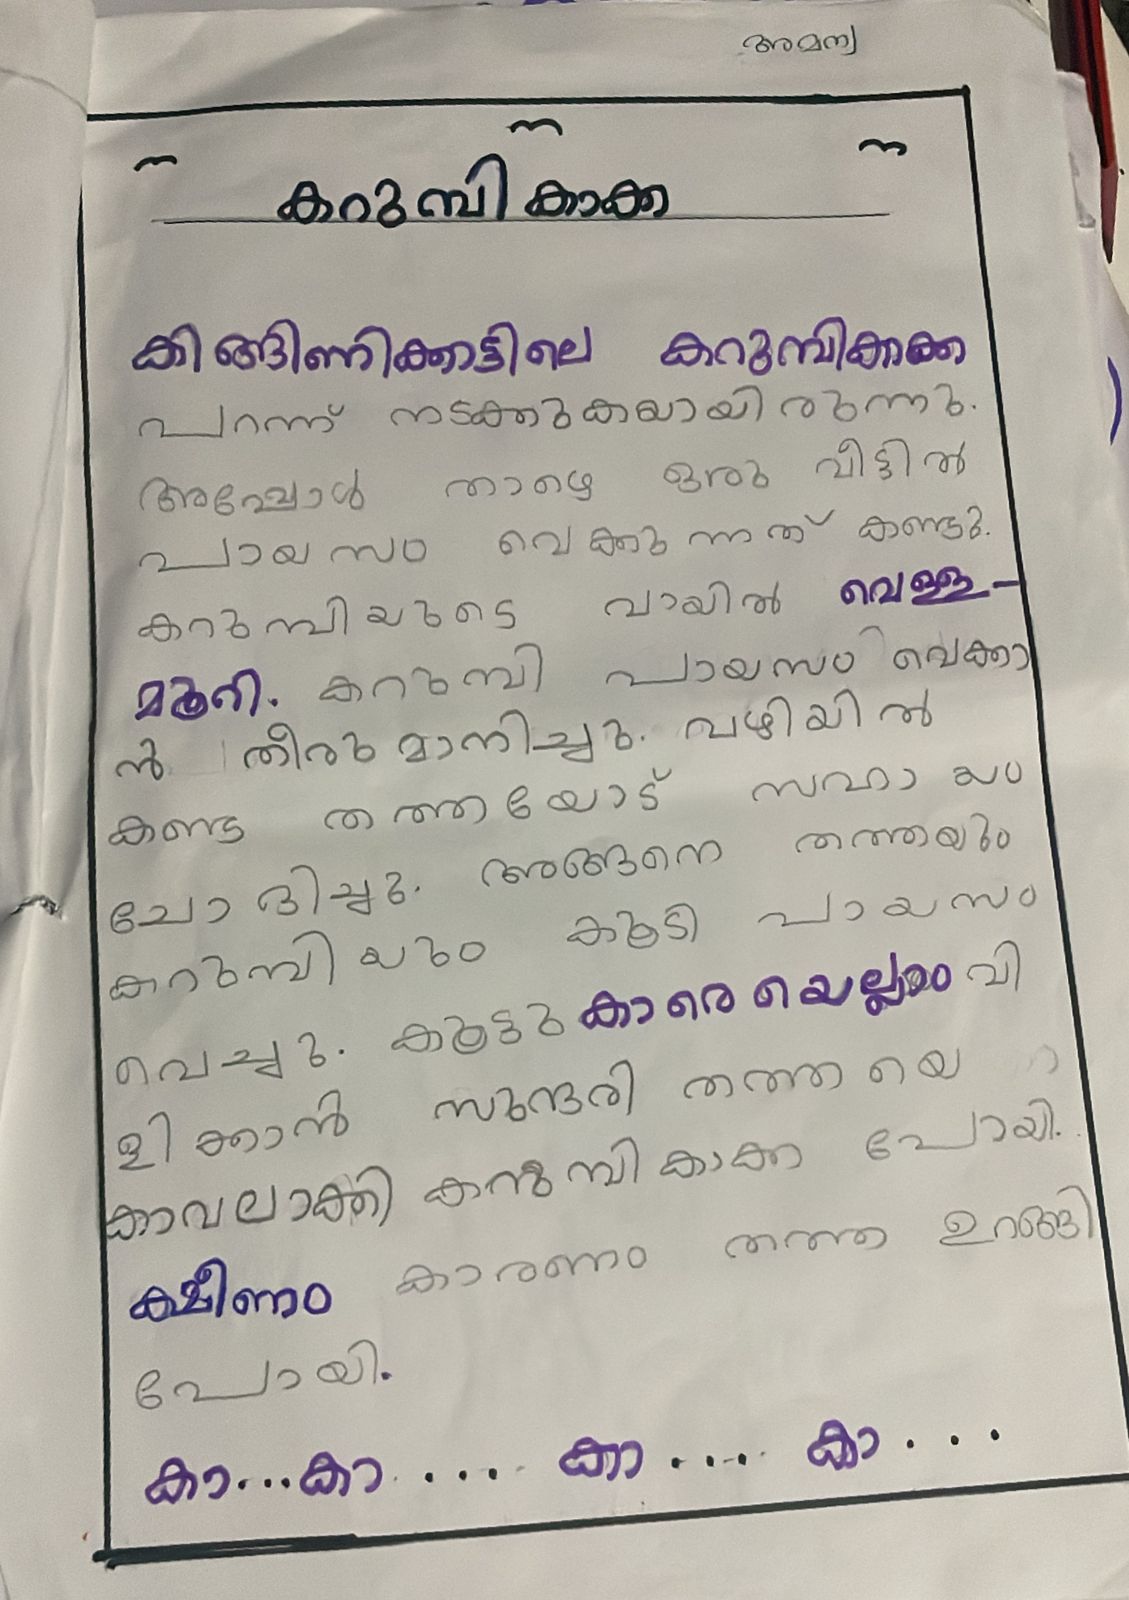 അമന്യ
കറുമ്പികാക്ക
കിങ്ങിണിക്കാട്ടിലെ കറുമ്പിക്കാക്ക
പറന്ന് നടക്കുകയായിരുന്നു.
അപ്പോൾ താഴെ ഒരു വീട്ടിൽ
പായസം വെക്കുന്നത് കണ്ടു.
കറുമ്പിയുടെ വായിൽ വെള്ള-
മൂറി. കറുമ്പി പായസം വെക്കാ
ൻ തീരുമാനിച്ചു. വഴിയിൽ
കണ്ട തത്തയോട് സഹായം
ചോദിച്ചു. അങ്ങനെ തത്തയും
കറുമ്പിയും കൂടി പായസം
വെച്ചു. കൂട്ടുകാരെയെല്ലാം വി
ളിക്കാൻ സുന്ദരി തത്തയെ
കാവലാക്കി കറുമ്പികാക്ക പോയി.
ക്ഷീണം കാരണം തത്ത ഉറങ്ങി
പോയി.
കാ...കാ.... കാ.... കാ...